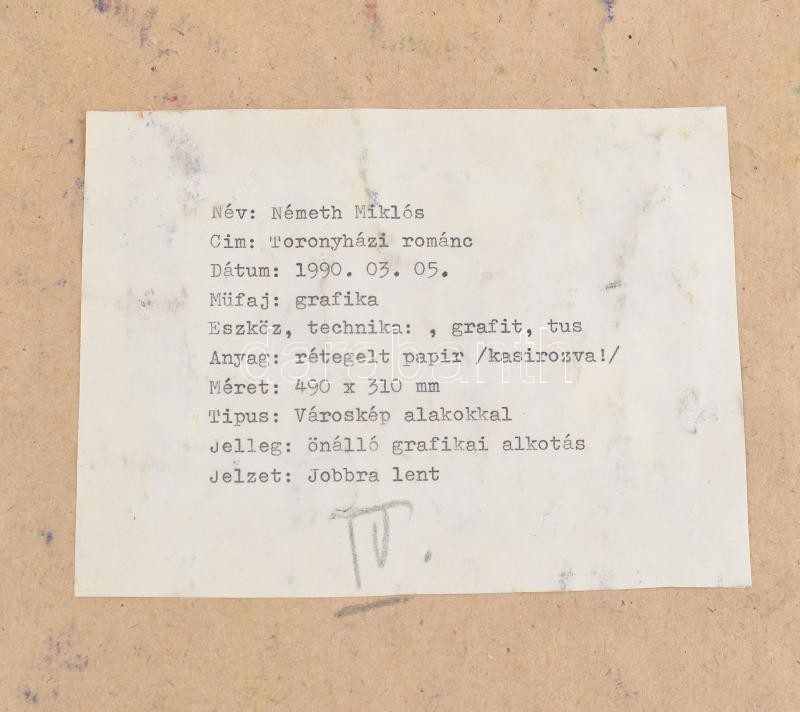 Név: Németh Miklós
Cim: Toronyházi románc
Dátum: 1990. 03. 05.
Müfaj: grafika
Eszköz, technika: , grafit, tus
Anyag: rétegelt papir /kasirozva!/
darabanth
Méret: 490 x 310 mm
Tipus: Városkép alakokkal
Jelleg: önálló grafikai alkotás
Jelzet: Jobbra lent
IV.